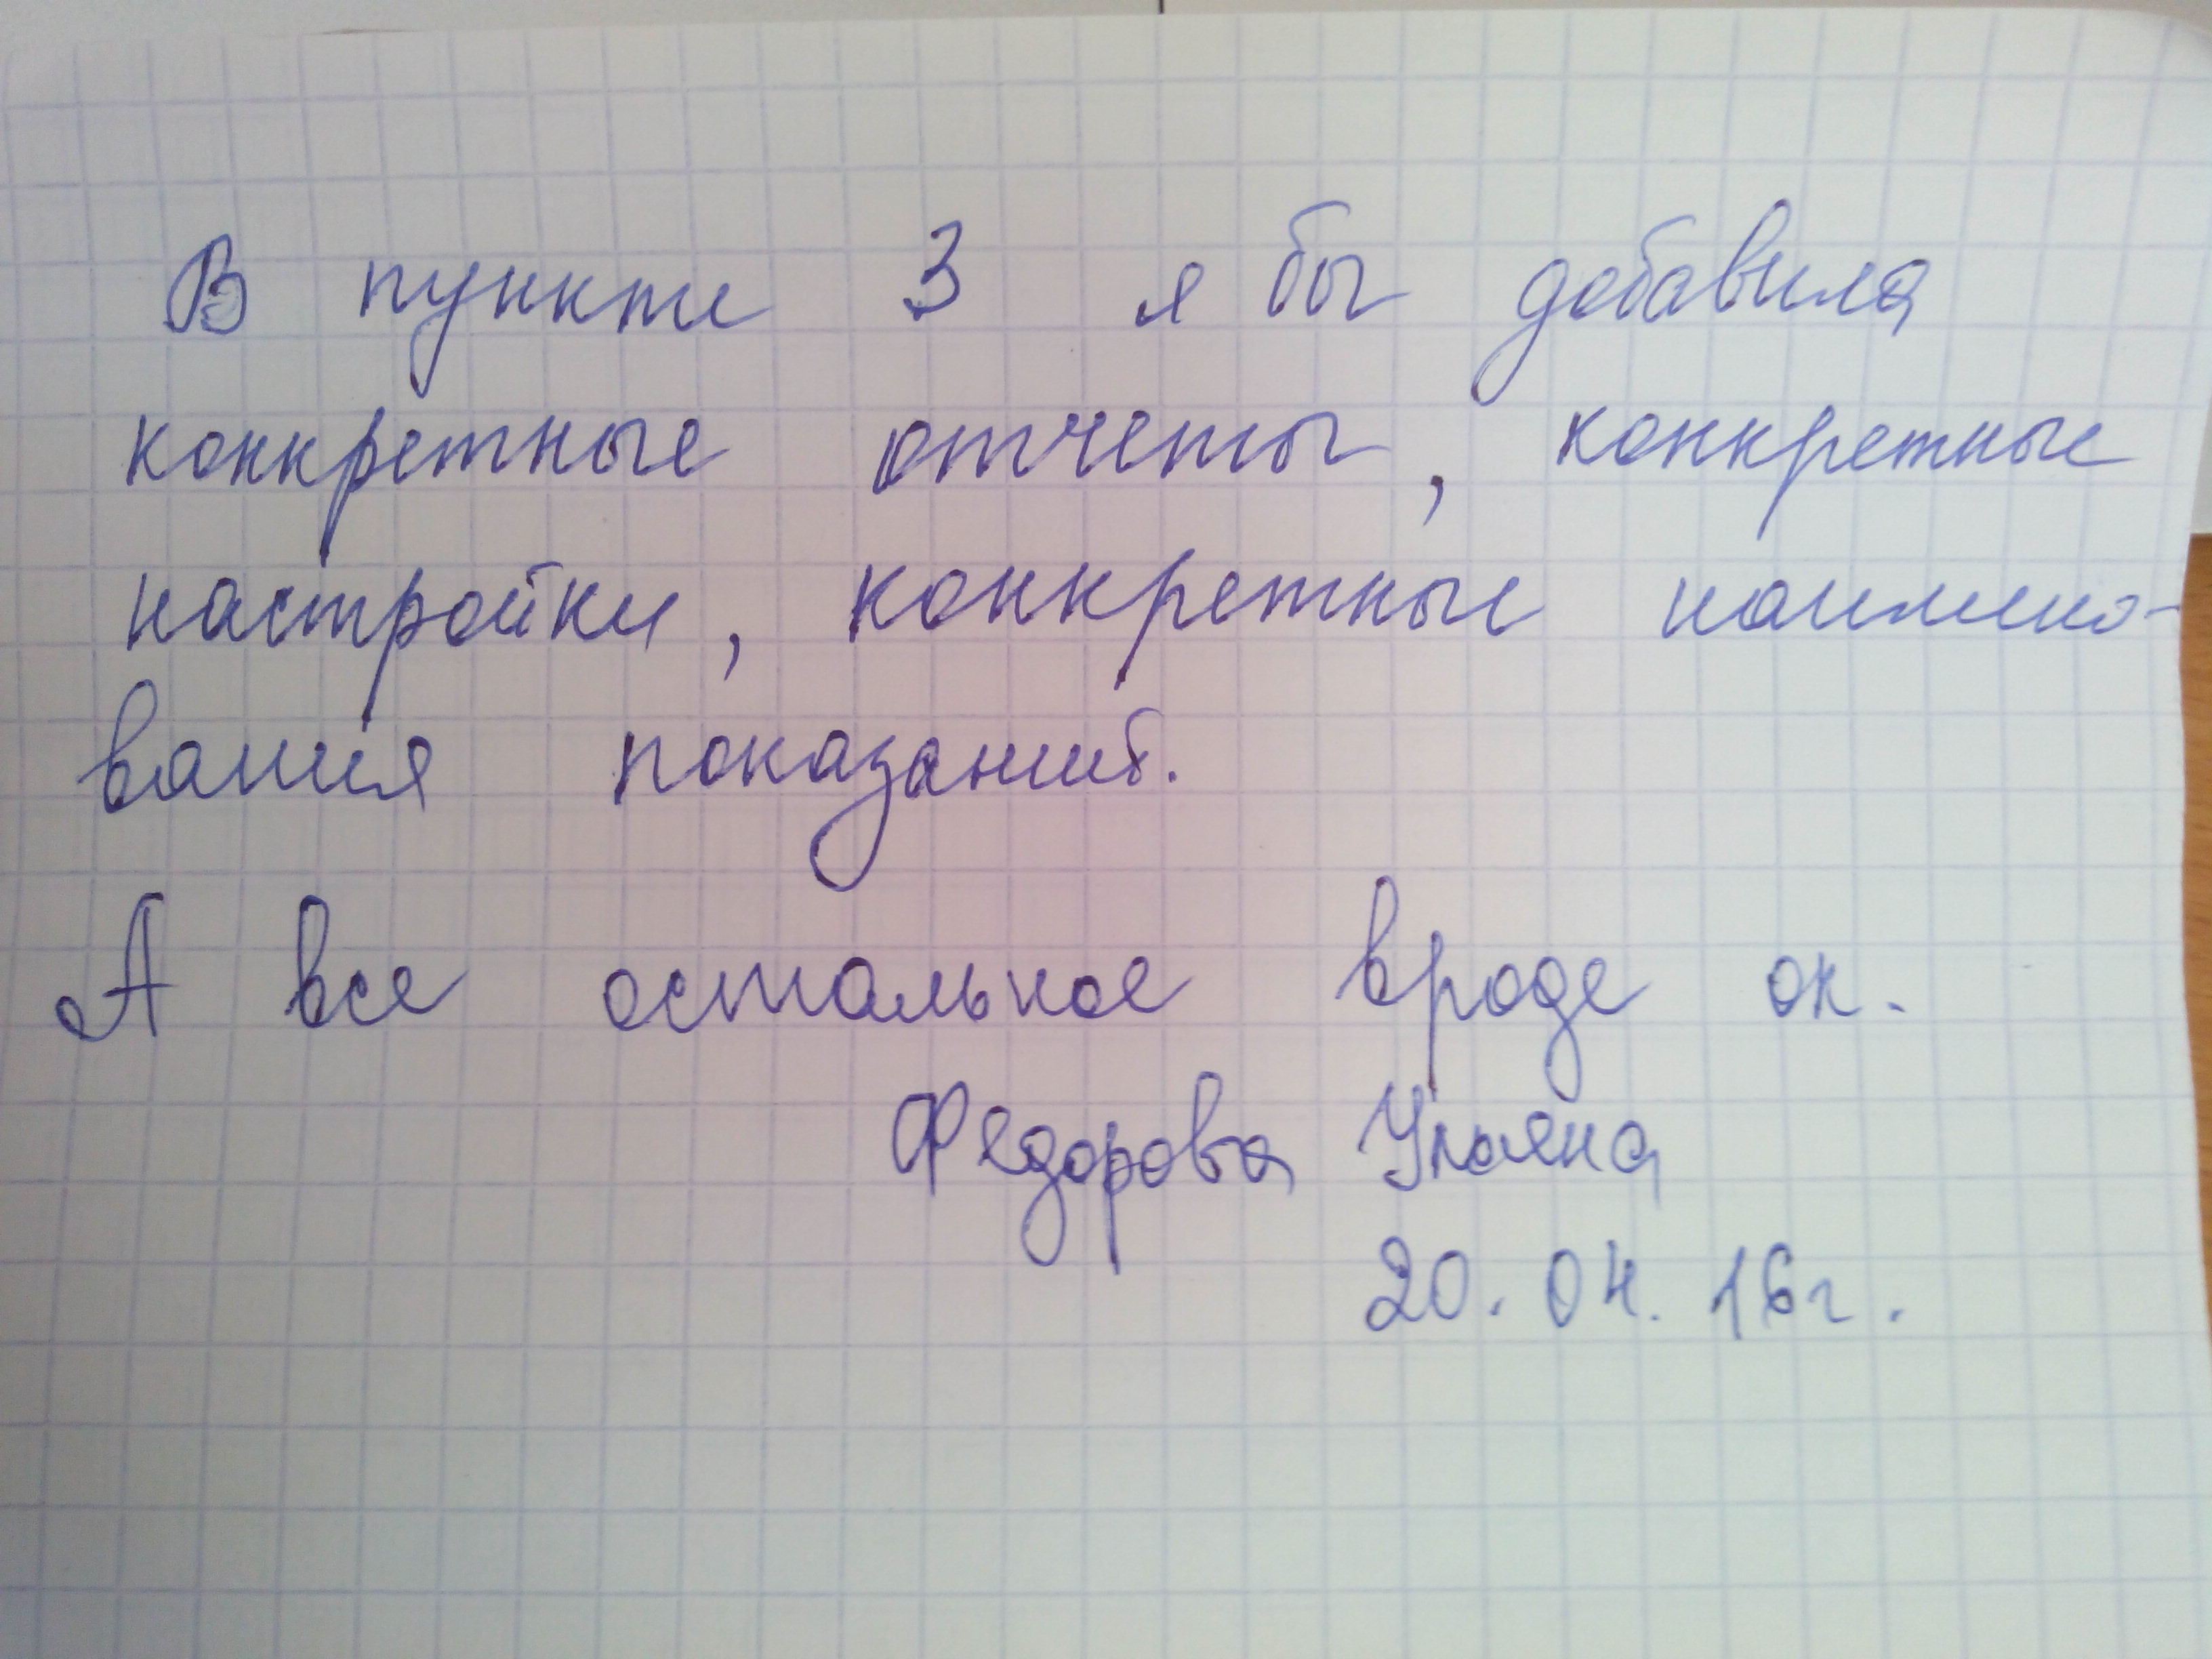 В пункте 3 я бы добавила
конкретные отчеты, конкретные
настройки, конкретные наимено-
вания показаний.
А все остальное вроде ок.
Федорова Ульяна
20.04.16г.